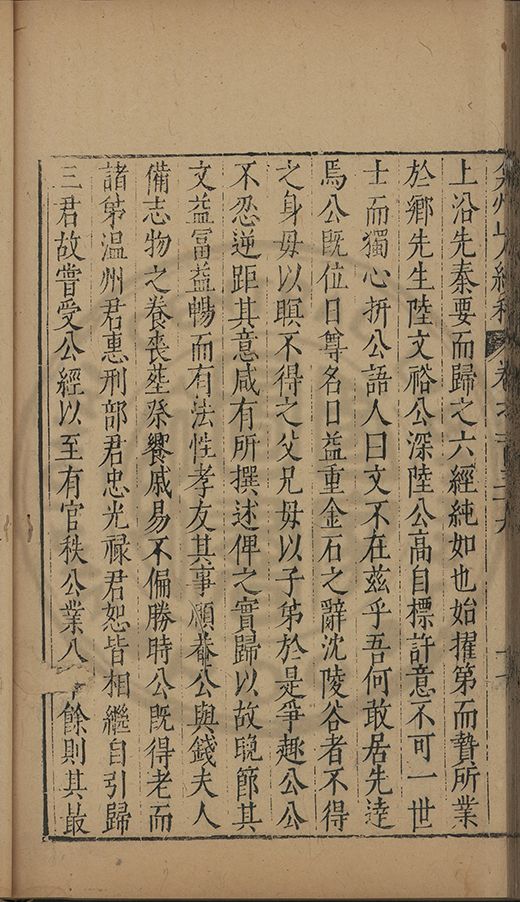 上沿先秦要而歸之六經純如也始擢第而贄所業
於鄉先生陸文裕公深陸公高自標許意不可一世
士而獨心折公語人曰文不在茲乎吾何敢居先達
焉公既位日尊名日益重金石之辭沈陵谷者不得
之身毋以瞑不得之父兄毋以子弟於是爭趣公公
不忍逆距其意咸有所撰述俾之實歸以故晚節其
文益冨益暢而有法性孝友其事順菴公與錢夫人
備志物之養喪塟祭饗戚易不偏勝時公既得老而
諸弟温州君惠刑部君忠光禄君恕皆相繼自引歸
三君故嘗受公經以至有官秩公業八 餘則其最